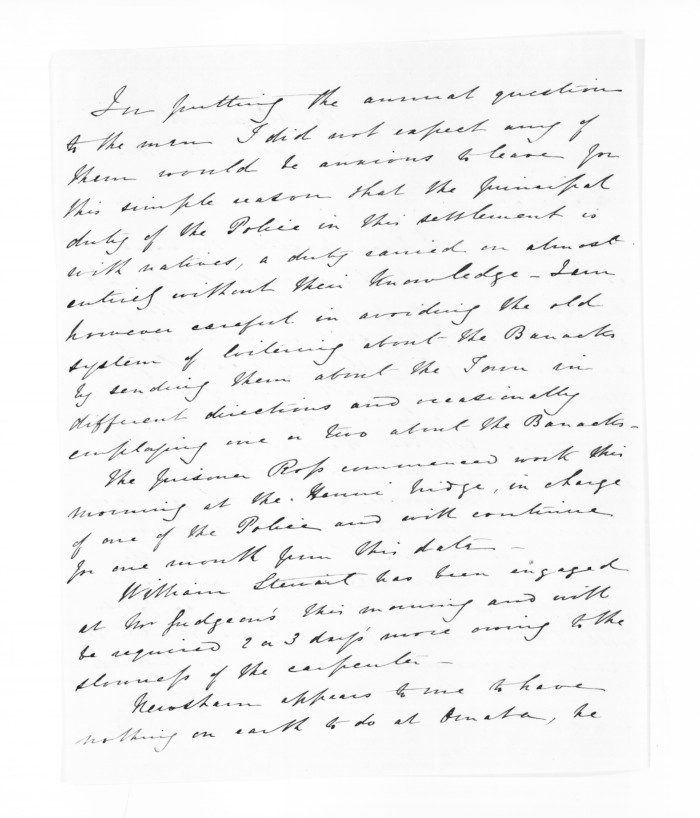 In putting the annual question
to the men I did not expect any of
them would be anxious to leave for
this simple reason that the principal
duty of the Police in this settlement is
with natives, a duty carried on almost
entirely without their Knowledge – I am
however careful in avoiding the old
system of loitering about the Barracks
by sending them about the Town in
different directions and occasionally
employing one or two about the Barracks –
The prisoner Ross commenced work this
morning at the Henui bridge, in charge
of one of the Police and will continue
for one month from this date –
William Stewart has been engaged
at Mr Gudgeon's this morning and will
be required 2 or 3 days more owing to the
slowness of the carpenter –
Newsham appears to me to have
nothing on earth to do at Omata, he